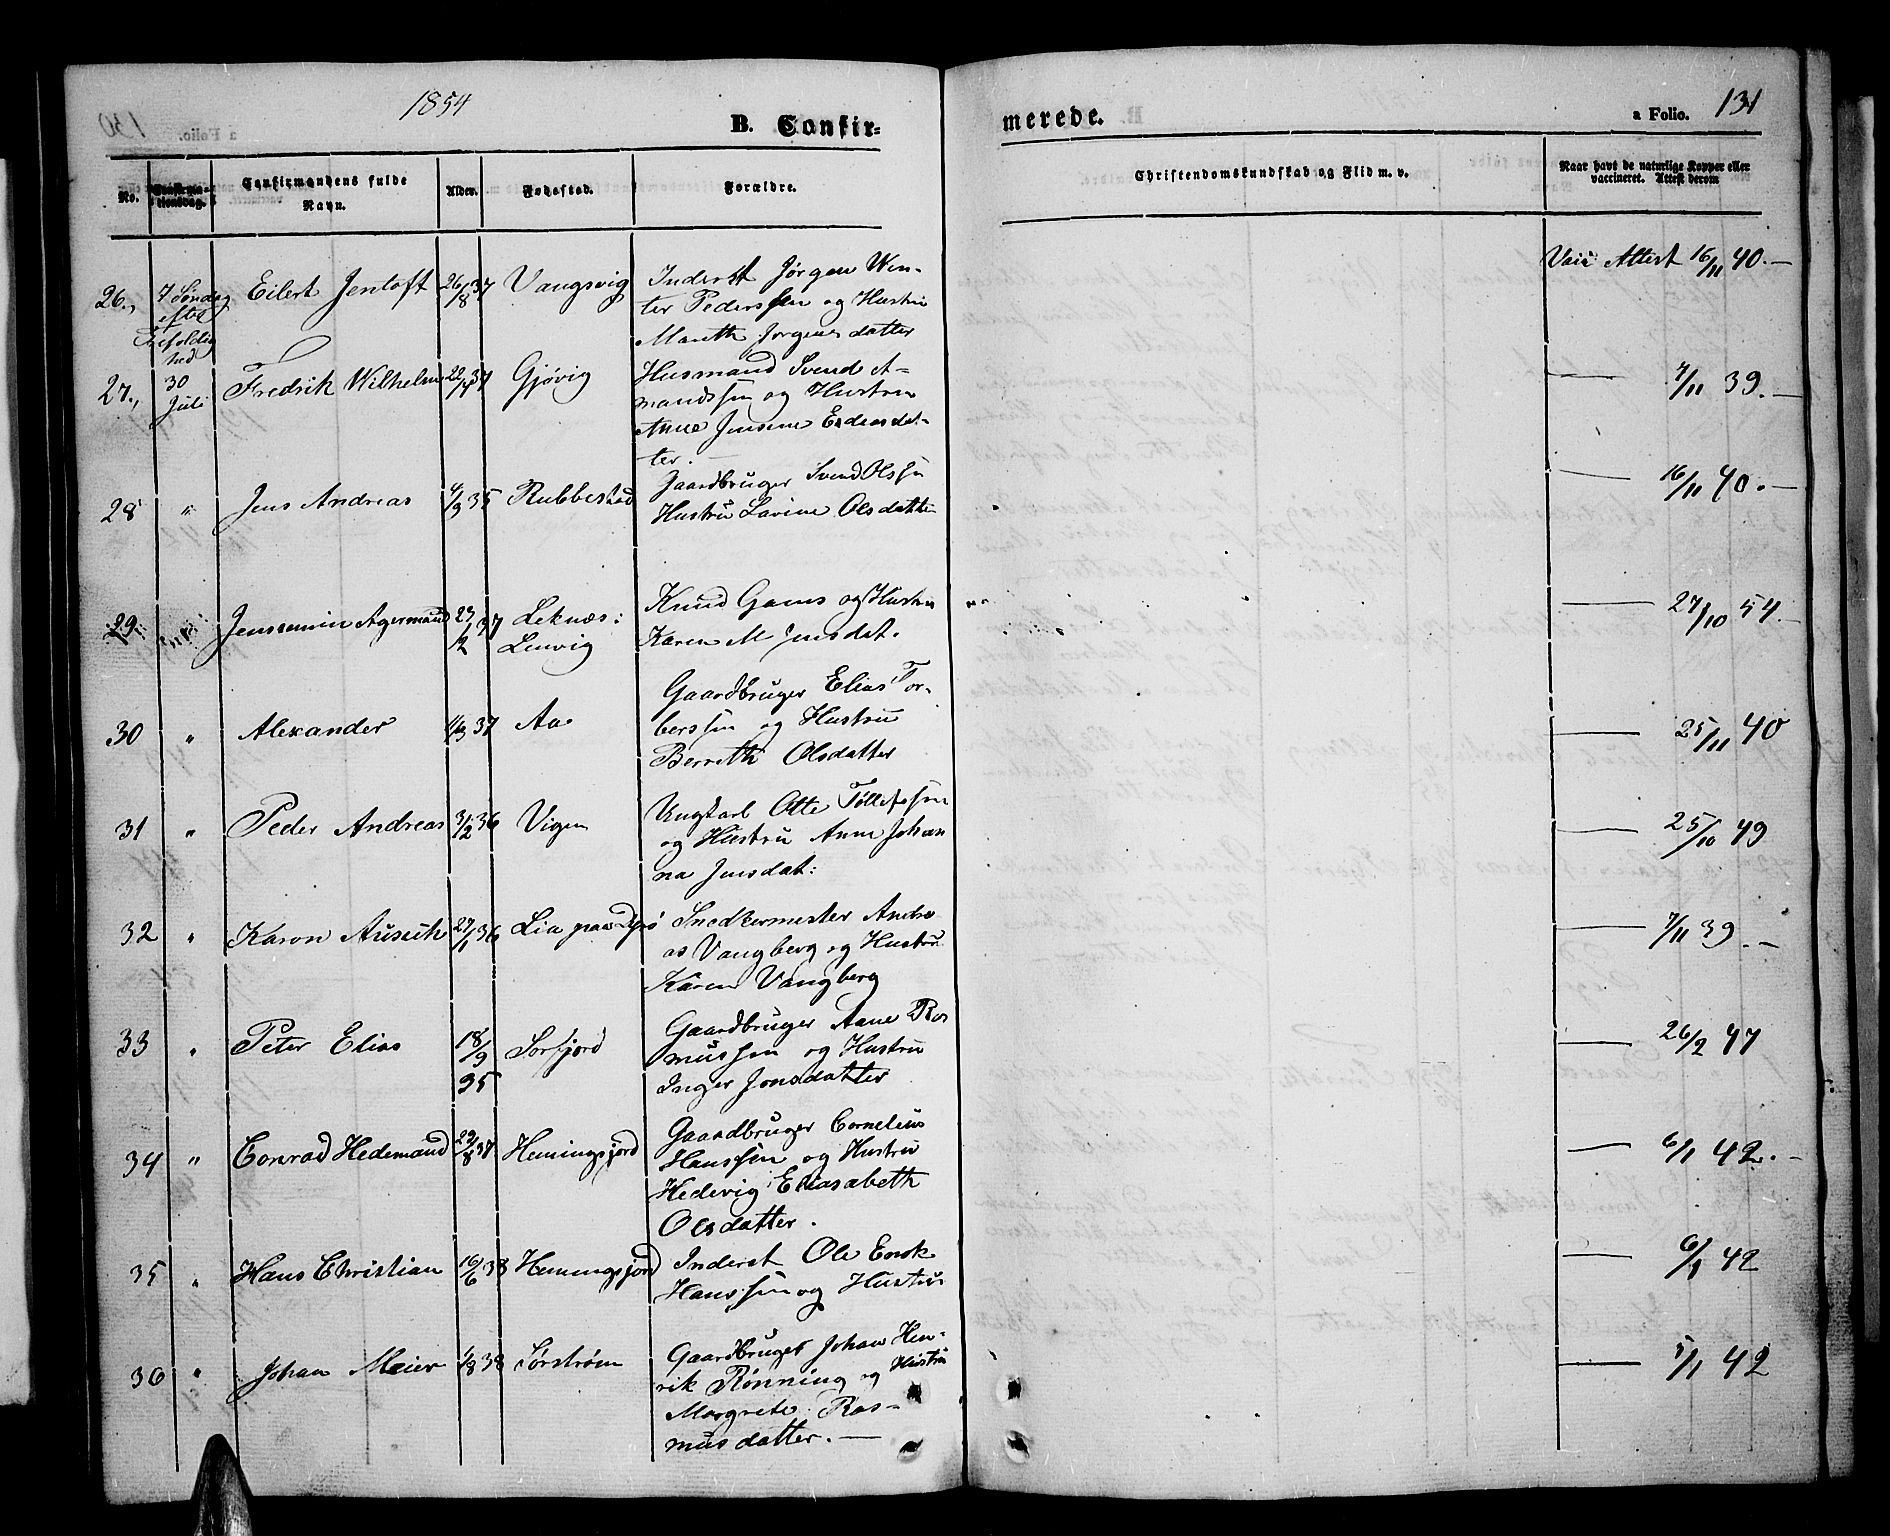 1854
B. Confir-
merede.
a Folio. 131
No.
Confirma-
tionsdag.
Confirmandens fulde
Navn.
Alder.
Fødested.
Forældre.
Christendomskundskab og Flid m. v.
Naar havt de naturlige Kopper eller
vaccineret. Attest derom
26., 7 Søndag efter Trefoldig hed Eilert Jentoft 26/8 37 Vangsvig Inderst Jørgen Win-
ter Pederssen og Hustru
Mareth Jørgensdatter
Vacc Attest 16/11 40.—
27., 30 Juli Fredrik Wilhelm 37 Gjøvig Husmand Svend A-
mandssen og Hustru
Anne Jensine Endresdat-
ter.—
— 7/11 39.—
28 " Jens Andreas 4/9 35 Rubbestad Gaardbruger Svend Olssen
Hustru Lavine Olsdatter
— 16/11 40.—
29. Agermand 23/2 37 Leknæs: Lenvig Knud Gams og Hustru
Karen M Jensdat.
— 27/10 54.
30 " Alexander 37 Aa Gaardbruger Elias Tor-
berssen og Hustru
Berreth Olsdatter
— 25/11 40
31 " Peder Andreas 3/2 36 Vigen Ungkarl Otte Tøllefssen
og Hustru Anne Johan
na Jensdat:
— 25/10 49
32 " Karon 27/1 36 Lia paa Snedkermester Andre
as Vangberg og Hustru
Karen Vangberg
— 7/11 39.—
33 " Peter Elias 18/9 35 Sørfjord Gaardbruger Aane Ras
mussen og Hustru
Inger Jonsdatter
— 26/2 47
34 " Conrad Hedemand 29/8 37 Hemingsjord Gaardbruger Cornelius
Hanssen og Hustru
Hedevig Eliasabeth
Olsdatter.
— 6/1 42.—
35 " Hans Christian 16/6 38 Hemingsjord Inderst Ole Enok
Hanssen og Hustru
— 6/1 42
36 " Johan Meier 1/8 38 Sørstrøm Gaardbruger Johan Hen-
rik Rønning og Hustru
Margrete Ras-
musdatter.—
— 5/1 42